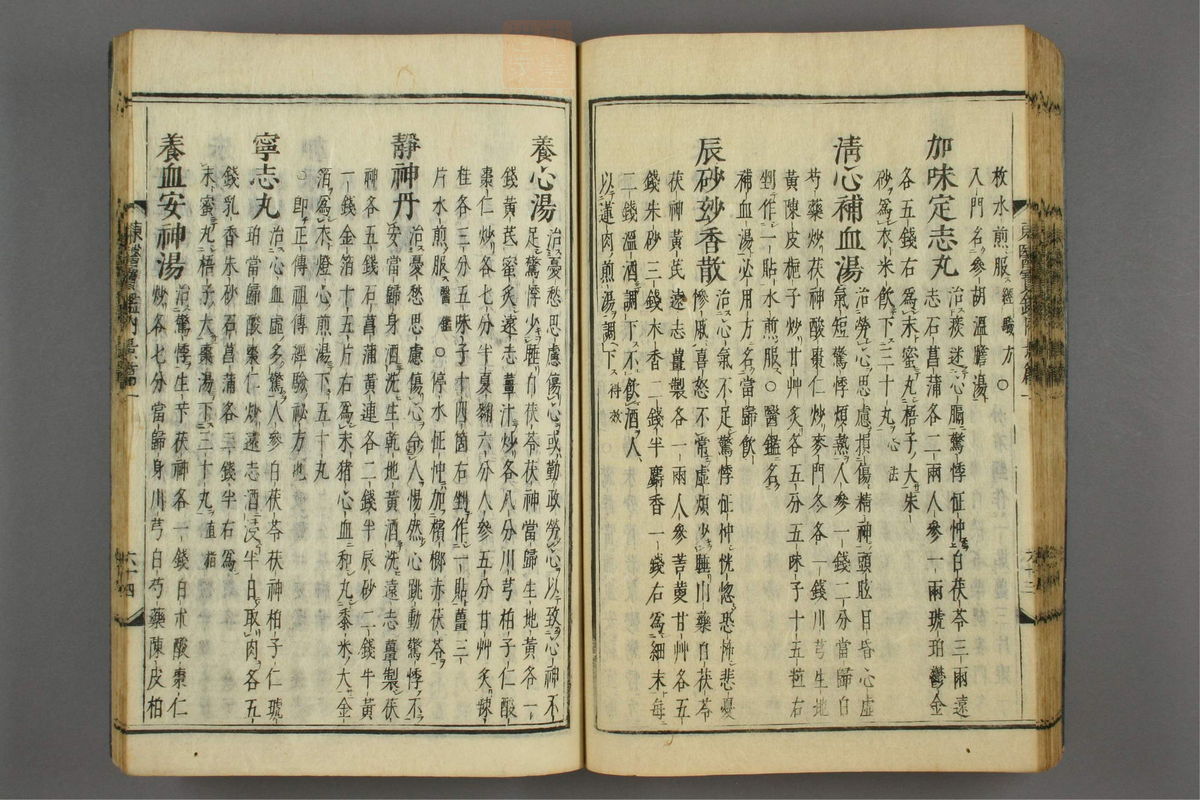 枚水煎服經驗方○
入門名參胡溫膽湯
加味定志丸治痰迷心膈驚悸怔忡白茯苓三兩遠
志石菖蒲各二兩人參一兩琥珀鬱金
各五錢右爲末蜜丸梧子大朱
砂爲衣米飮下三十丸心法
淸心補血湯治勞心思慮損傷精神頭眩目昏心虛
氣短驚悸煩熱人參一錢二分當歸白
芍藥炒茯神酸棗仁炒麥門冬各一錢川芎生地
黃陳皮梔子炒甘艸炙各五分五味子十五粒右
剉作一貼水煎服○醫鑑名
補血湯必用方名當歸飮
辰砂妙香散治心氣不足驚悸怔忡恍惚恐怖悲憂
慘戚喜怒不常虛煩少睡川藥白茯苓
茯神黃芪遠志薑製各一兩人參吉莄甘艸各五
錢朱砂三錢木香二錢半麝香一錢右爲細末每
二錢溫酒調下不飮酒人
以蓮肉煎湯調下得效
養心湯治憂愁思慮傷心或勤政勞心以致心神不
足驚悸少睡白茯苓茯神當歸生地黃各一
錢黃芪蜜炙遠志薑汁炒各八分川芎柏子仁酸
棗仁炒各七分半夏麴六分人參五分甘艸炙辣
桂各三分五味子十四箇右剉作一貼薑三
片水煎服醫鑑○停水怔忡加檳榔赤茯苓
靜神丹治憂愁思慮傷心令人惕然心跳動驚悸不
安當歸身酒洗生乾地黃酒洗遠志薑製茯
神各五錢石菖蒲黃連各二錢半辰砂二錢牛黃
一錢金箔十五片右爲末猪心血和丸黍米大金
箔爲衣燈心煎湯下五十丸
○卽正傳祖傳經驗秘方也
寧志丸治心血虛多驚人參白茯苓茯神柏子仁琥
珀當歸酸棗仁炒遠志酒浸半日取肉各五
錢乳香朱砂石菖蒲各三錢半右爲
末蜜丸梧子大棗湯下三十丸直指
養血安神湯治驚悸生芐茯神各一錢白朮酸棗仁
炒各七分當歸身川芎白芍藥陳皮柏
東醫寶鑑內景篇一
六十四